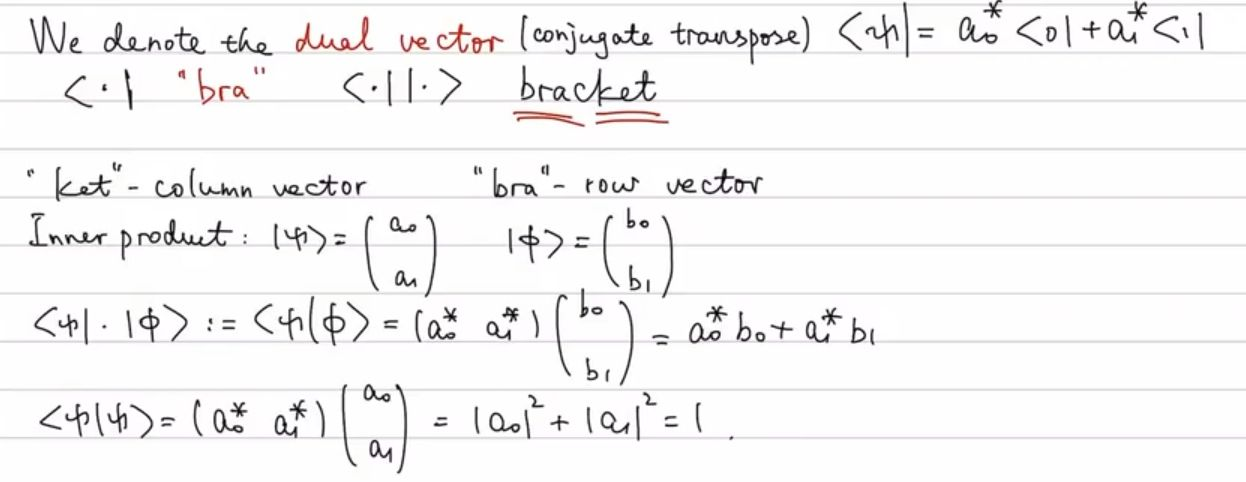 We denote the dual vector (conjugate transpose) <ψ| = a₀* <0| + a₁* <1|
<·| "bra" <·||·> bracket
"ket" - column vector "bra" - row vector
Inner product: |ψ> = (a₀ a₁) |ϕ> = (b₀ b₁)
<ψ| · |ϕ> := <ψ|ϕ> = (a₀* a₁*) (b₀ b₁) = a₀* b₀ + a₁* b₁
<ψ|ψ> = (a₀* a₁*) (a₀ a₁) = |a₀|² + |a₁|² = 1.